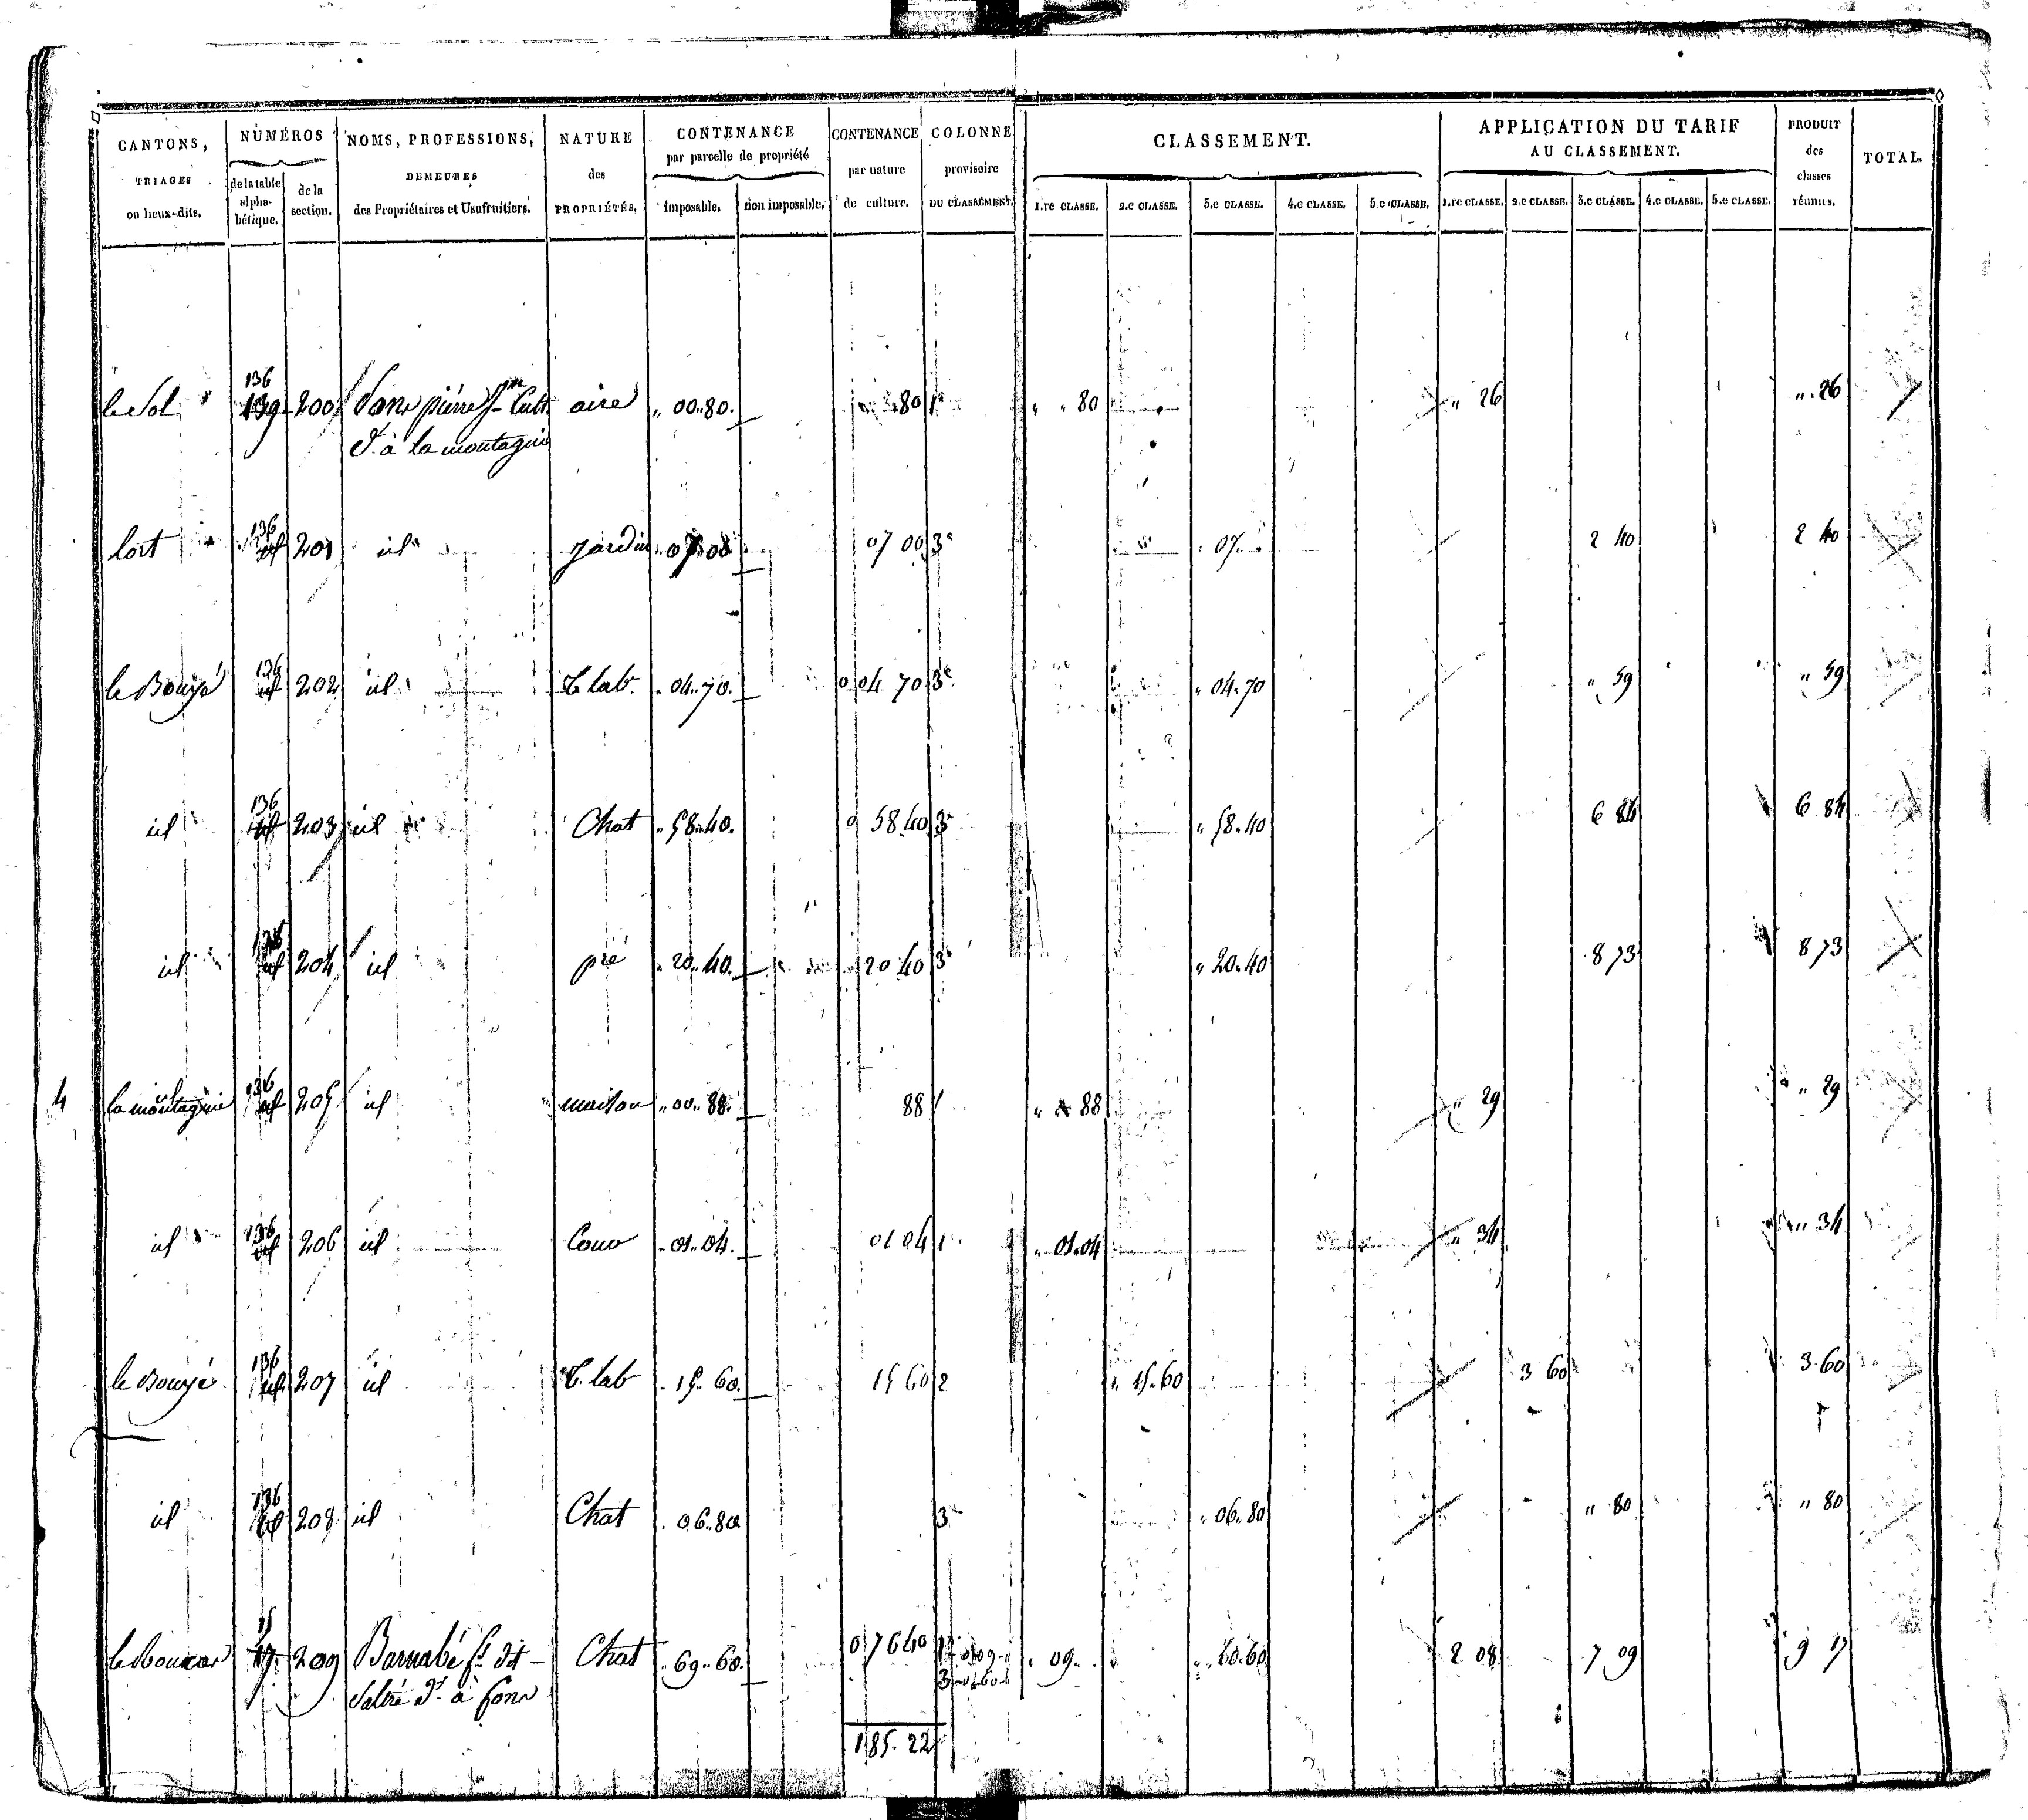 CANTONS, TRIAGES ou lieux-dits. | NUMÉROS de la table alphabétique. | de la section. | NOMS, PROFESSIONS, DEMEURES des Propriétaires et Usufruitiers. | NATURE des PROPRIÉTÉS. | CONTENANCE par parcelle de propriété imposable. | non imposable. | CONTENANCE par nature de culture. | COLONNE provisoire DU CLASSEMENT. | CLASSEMENT. 1.re CLASSE. | 2.e CLASSE. | 3.e CLASSE. | 4.e CLASSE. | 5.e CLASSE. | APPLICATION DU TARIF AU CLASSEMENT. 1.re CLASSE. | 2.e CLASSE. | 3.e CLASSE. | 4.e CLASSE. | 5.e CLASSE. | PRODUIT des classes réunies. | TOTAL.
le Sol 136 139 200 pierre Cult. aire " 00.. 80. 80 1e " " 80 " 26 " 26
dt. à la montagnie
lort 136 id 201 id jardin 07 00 07 00 3e " 07 " 2 40 2 40
le Bouyé 136 id 202 id t. lab. " 04.. 70. 0 04 70 3e " 04.. 70 " 59 " 59
id 136 id 203 id Chat " 58.. 40. 0 58 40 3e " 58.. 40 6 84 6 84
id 136 id 204 id pré " 20.. 40. 20 40 3e " 20.. 40 8 73 8 73
4 la montagnie 136 id 205 id maison " 00.. 88. 88 1 " " 88 " 29 " 29
id 136 id 206 id Cour " 01.. 04. 01 04 1e " 01.. 04 " 34 " 34
le Bouyé 136 id 207 id t. lab " 15.. 60. 15 60 2 " 15.. 60 3 60 3 60
id 136 id 208 id Chat " 06.. 80 3e " 06.. 80 " 80 " 80
15 17 209 Barnabé dit Chat " 69.. 60. 0 76 40 1e 0 09 " 09 " " 60.. 60 2 08 7 09 9 17
dt. à 3
185. 22